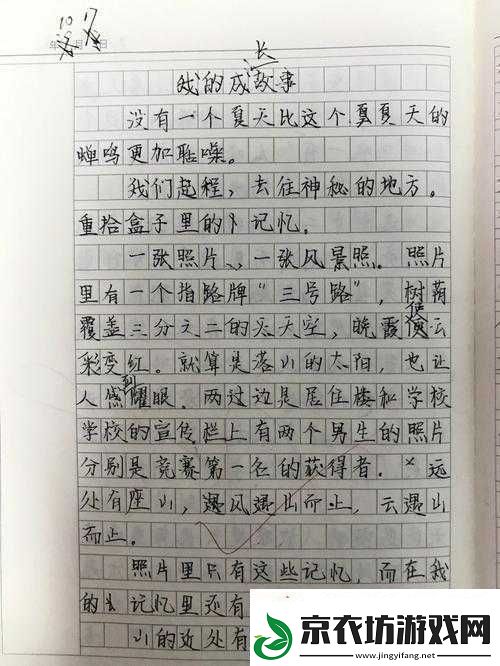 10 17
年 月
我的成长故事
没有一个夏天比这个夏夏天的
蝉鸣更加聒噪。
我们起程，去往神秘的地方。
重拾盒子里的记忆。
一张照片，一张风景照。照片
里有一个指路牌“三号路”，树荫
覆盖三分之二的天空，晚霞使云
彩变红。就算是落山的太阳，也让
人感到耀眼。两过边是居住楼和学校
学校的宣传栏上有两个男生的照片
分别是竞赛第一名的获得者。远
处有座山，遇风遇山而止，云遇山
而止。
照片里只有这些记忆，而在我
的记忆里还有
山的近处有
京农坊游戏网
www.jingyifang.net